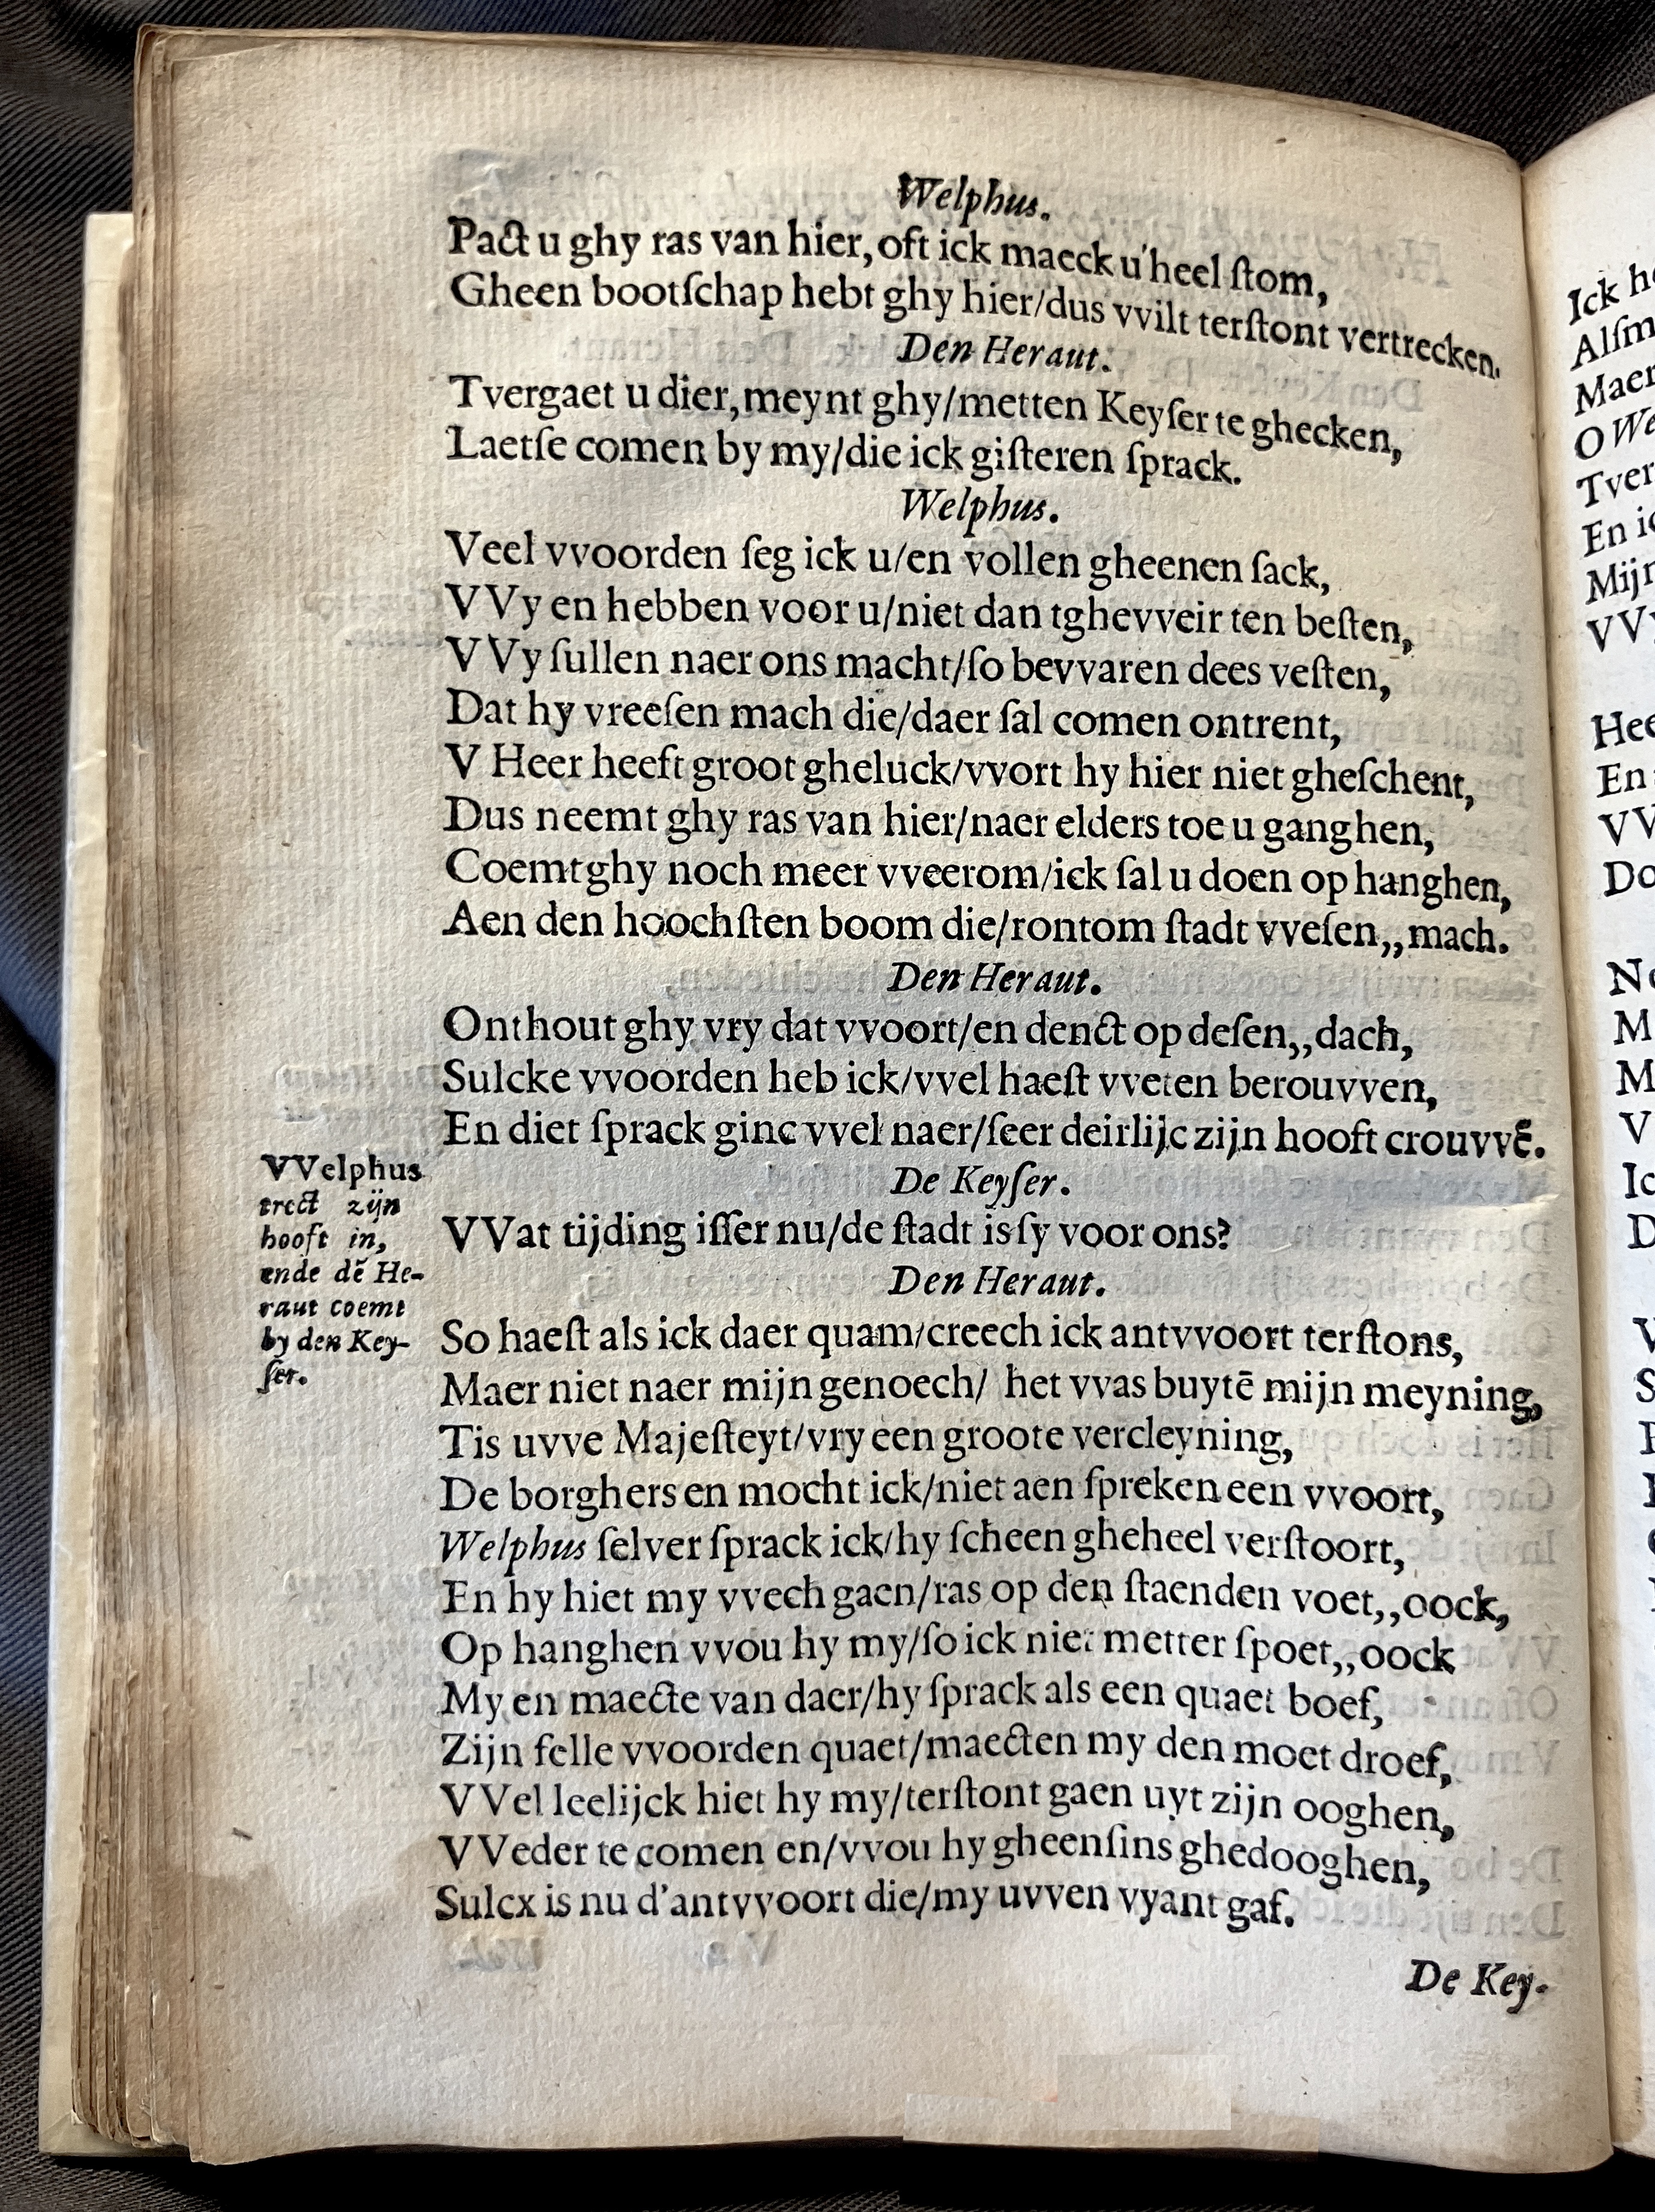 Welphus.
Pact u ghy ras van hier, oft ick maeck u'heel ſtom,
Gheen bootſchap hebt ghy hier/dus vvilt terſtont vertrecken.
Den Heraut.
Tvergaet u dier, meynt ghy/metten Keyſer te ghecken,
Laetſe comen by my/die ick giſteren ſprack.
Welphus.
Veel vvoorden ſeg ick u/en vollen gheenen ſack,
VVy en hebben voor u/niet dan tghevveir ten beſten,
VVy ſullen naer ons macht/ſo bevvaren dees veſten,
Dat hy vreeſen mach die/daer ſal comen ontrent,
V Heer heeft groot gheluck/vvort hy hier niet gheſchent,
Dus neemt ghy ras van hier/naer elders toe u ganghen,
Coemt ghy noch meer vveerom/ick ſal u doen op hanghen,
Aen den hoochſten boom die/rontom ſtadt vveſen,,mach.
Den Heraut.
Onthout ghy vry dat vvoort/en denct op deſen,,dach,
Sulcke vvoorden heb ick/vvel haeſt vveten berouvven,
En diet ſprack ginc vvel naer/ſeer deirlijc zijn hooft crouvvē.
De Keyſer.
VVelphus
trect zijn
hooft in,
ende dē He-
raut coemt
by den Key-
ſer.
VVat tijding iſſer nu/de ſtadt is ſy voor ons?
Den Heraut.
So haeſt als ick daer quam/creech ick antvvoort terſtons,
Maer niet naer mijn genoech/ het vvas buytē mijn meyning,
Tis uvve Majeſteyt/vry een groote vercleyning,
De borghers en mocht ick/niet aen ſpreken een vvoort,
Welphus ſelver ſprack ick/hy ſcheen gheheel verſtoort,
En hy hiet my vvech gaen/ras op den ſtaenden voet,,oock,
Op hanghen vvou hy my/ſo ick niet metter ſpoet,,oock
My en maecte van daer/hy ſprack als een quaet boef,
Zijn felle vvoorden quaet/maecten my den moet droef,
VVel leelijck hiet hy my/terſtont gaen uyt zijn ooghen,
VVeder te comen en/vvou hy gheenſins ghedooghen,
Sulcx is nu d'antvvoort die/my uvven vyant gaf.
De Key-
Ick
Maer
O We
Tver
En
Mijn
VVy
Hee
En
VV
Do